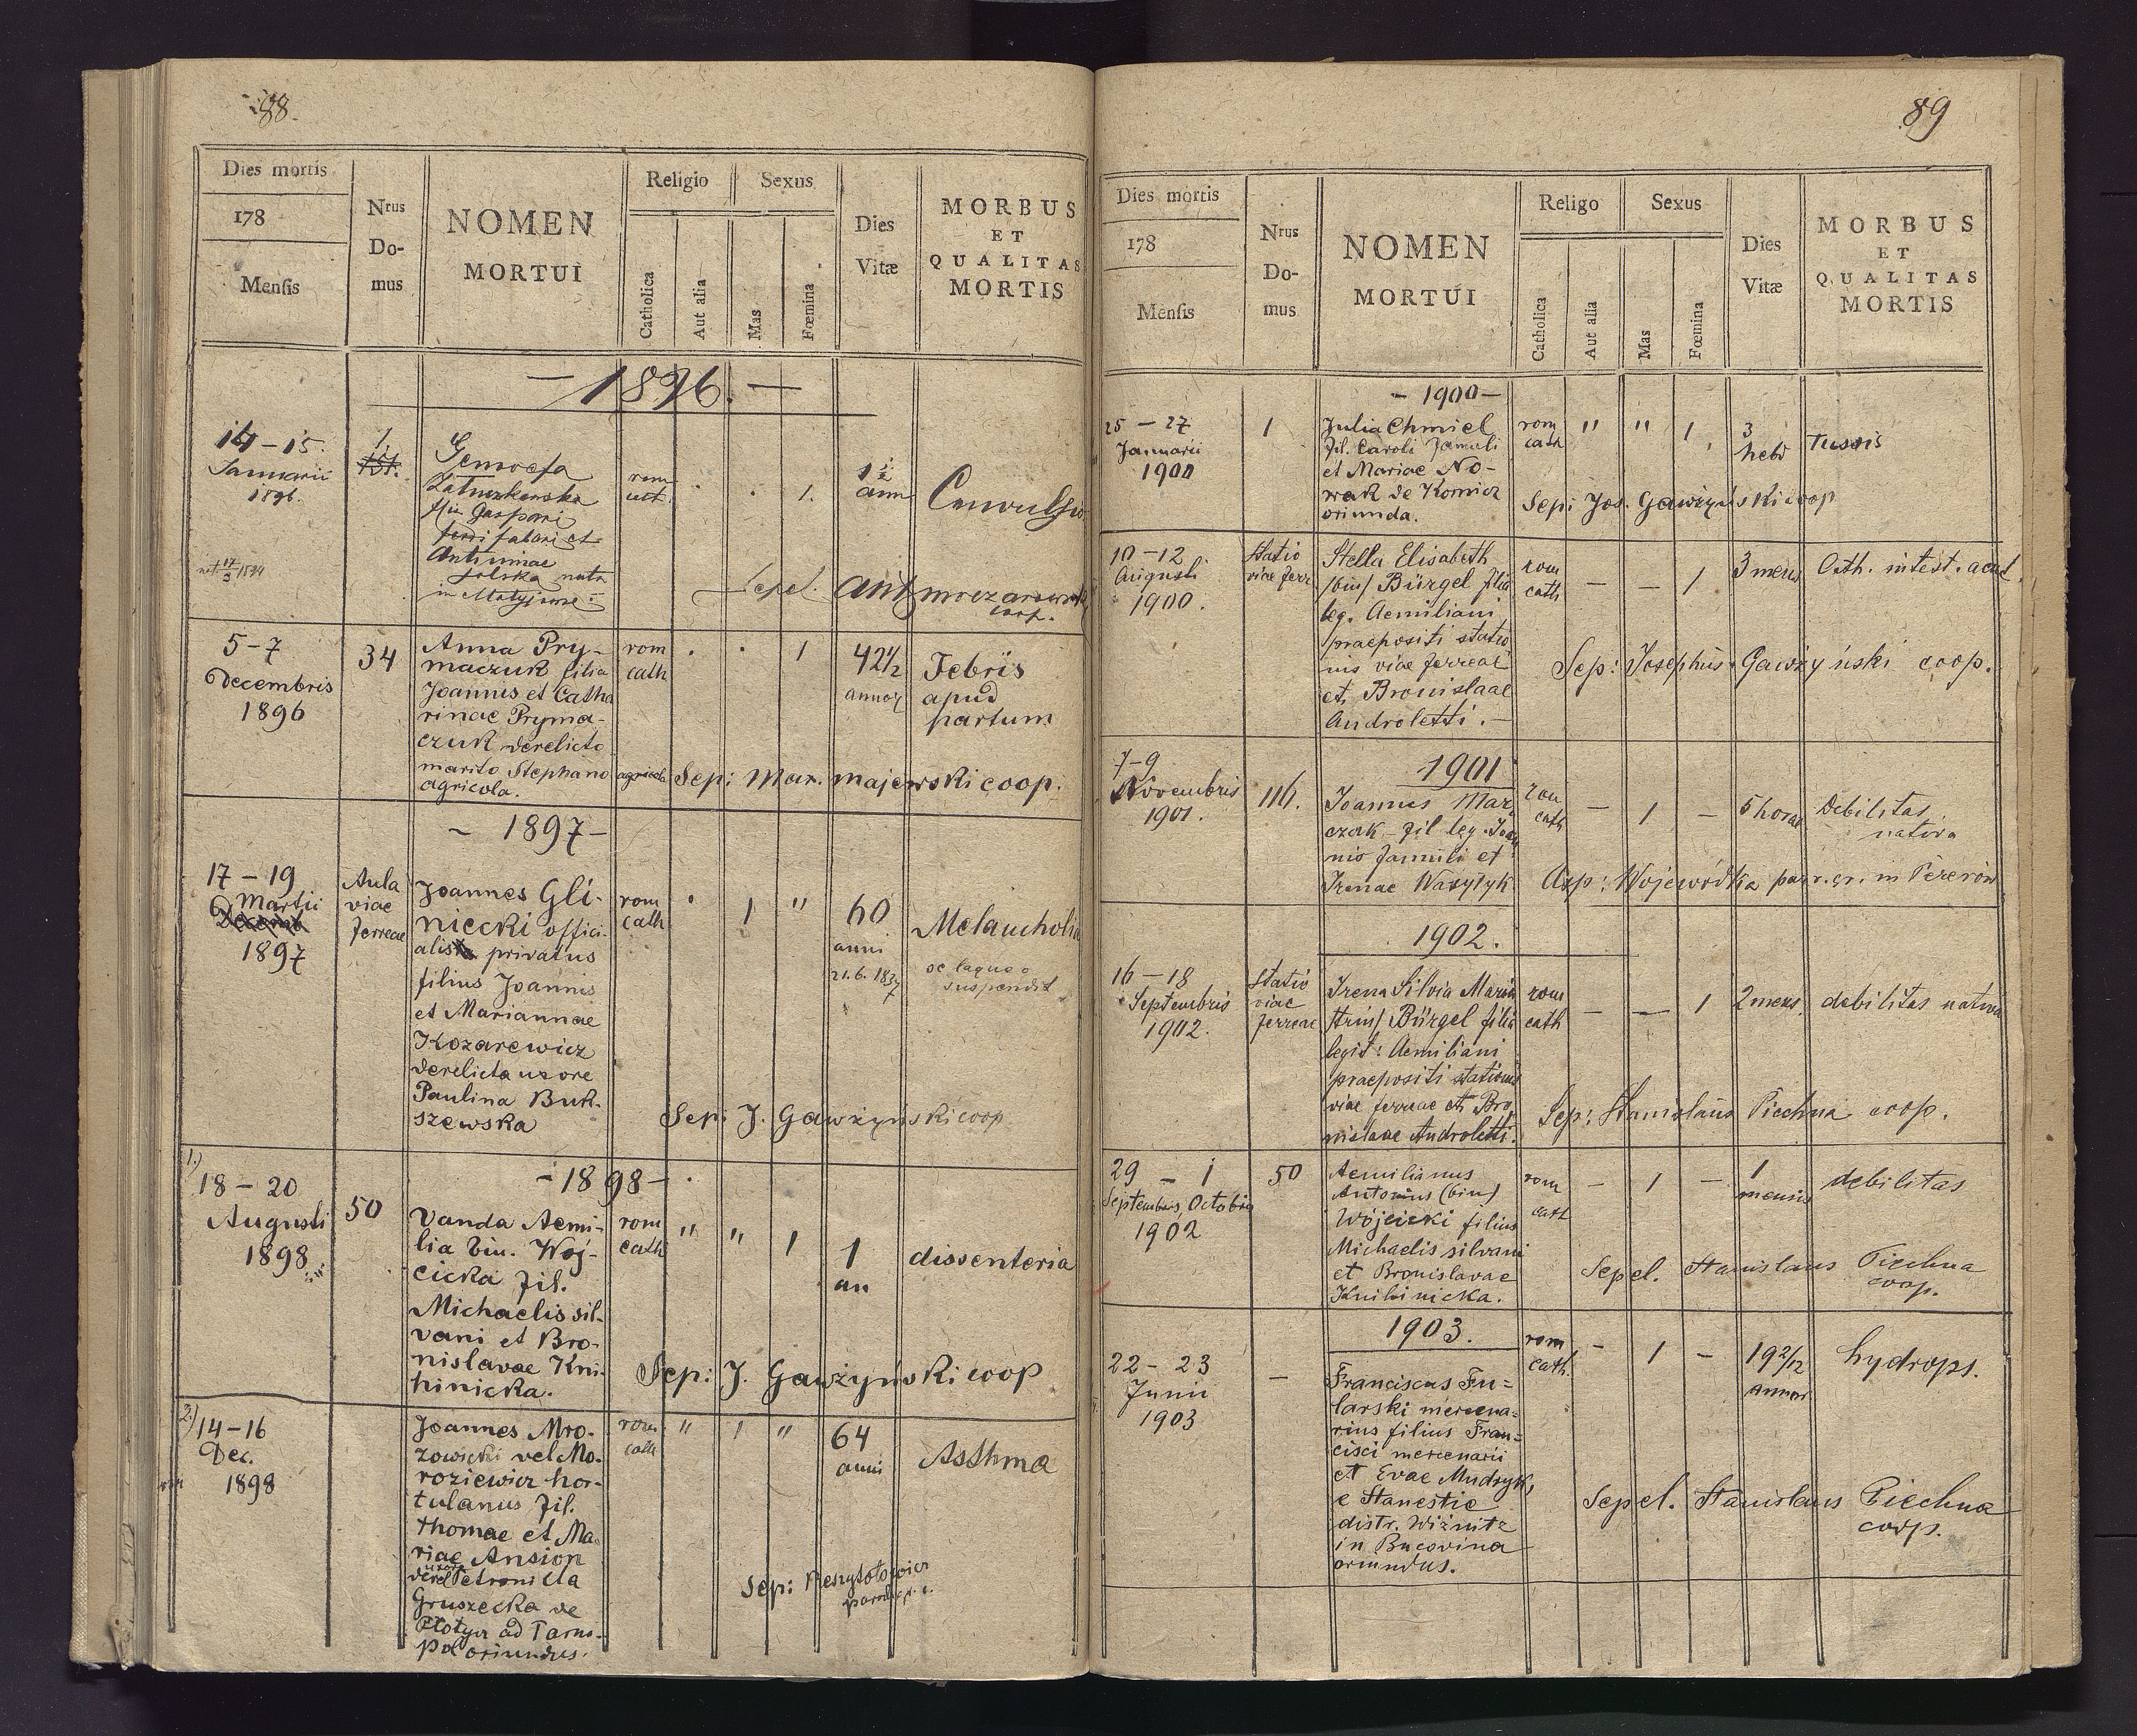 88.
Dies mortis
178
Mensis
Nrus
Do-
mus
NOMEN
MORTUI
Religio
Catholica
Aut alia
Sexus
Mas
Fœmina
Dies
Vitæ
MORBUS
ET
QUALITAS
MORTIS
— 1896. —
14 – 15.
Januarii
1896.
1.
Genovefa
filia Gaspari
fabari et
Antoninae
Solska nata
rom
cath.
1.
1 1/2
ann
Convulsio
Sepel. Ant
coop.
5 – 7
Decembris
1896
34
Anna Pry-
maczuk filia
Joannis et Catha
rinae Pryma-
czuk derelicto
marito Stephano agricola
agricola.
rom
cath
1
42 1/2
annor
Febris
apud
partum
Sep: Mar. Majewski coop.
– 1897 –
17 – 19
Martii
1897
Aula
viae
ferreae
Joannes Gli-
niecki offici-
alis privatus
filius Joannis
et Mariannae
Kozarewicz
derelicta uxore
Paulina Buk-
szewska
rom
cath
1
"
60
anni
21.6.1837
Melancholia
se laqueo
suspendit
Sep: J. Gawżyński coop
– 1898 –
1.)
18 – 20
Augusti
1898
50
Vanda Aemi-
lia bin. Woj-
cicka fil.
Michaelis sil-
vani et Bro-
nislavae Kni-
hinicka.
rom
cath
"
"
1
1
an
dissenteria
Sep: J. Gawżyński coop
2.)
14 – 16
Dec.
1898
Joannes Mro-
zowicki vel Mo-
roziewicz hor-
tulanus fil.
Thomae et Ma-
riae Ansion
derel uxore Petronilla
Gruszecka de
Płotycz ad Tarno-
pol oriundus.
rom
cath
"
1
"
64
anni
Asthma
Sep:
89
Dies mortis
178
Mensis
Nrus
Do-
mus
NOMEN
MORTUI
Religo
Catholica
Aut alia
Sexus
Mas
Fœmina
Dies
Vitæ
MORBUS
ET
QUALITAS
MORTIS
– 1900 –
25 – 27
Januarii
1900
1
Julia Chmiel
fil. Caroli famuli
et Mariae No-
wak de Komicz
oriunda.
rom
cath
"
"
1
3
hebd
Tussis
Sep: Jos. Gawżyński coop
10 – 12
Augusti
1900.
Statio
viae ferr.
Stella Elisabeth
/bin/ Bürgel filia
leg. Aemiliani
praepositi statio
nis viae ferreae
et Bronislaae
Androletti. –
rom
cath
–
–
1
3 mens
Cath. intest. acut.
Sep: Josephus Gawżyński coop.
1901
7 – 9
Novembris
1901.
116.
Joannes Mar
czak – fil leg. Joan
nis famuli et
Irenae Wasylyk
rom
cath
–
1
–
5 horae
Debilitas
nativa
Asp: Wojewódka par. gr. in Czerów
1902.
16 – 18
Septembris
1902.
Statio
viae
ferreae
Irena Silvia Maria
/trin/ Bürgel filia
legit: Aemiliani
praepositi stationis
viae ferreae et Bro
nislaae Androletti.
rom
cath
–
–
1
2 mens.
debilitas nativa
Sep: Stanislaus Piechna coop.
29 – 1
Septembris, Octobris
1902
50
Aemilianus
Antonius (bin)
Wojcicki filius
Michaelis silvani
et Bronislavae
Knihinicka.
rom
cath
–
1
–
1
mensis
debilitas
Sepel. Stanislaus Piechna
coop.
1903.
22 – 23
Junii
1903
–
Franciscus Fu=
larski mercena=
rius filius Fran=
cisci mercenarii
et Evae Mudryk,
e Stanestie
distr. Wiżnitz
in Bucovina
oriundus.
rom
cath.
–
1
–
19 2/12
annor
hydrops.
Sepel. Stanislaus Piechna
coop.